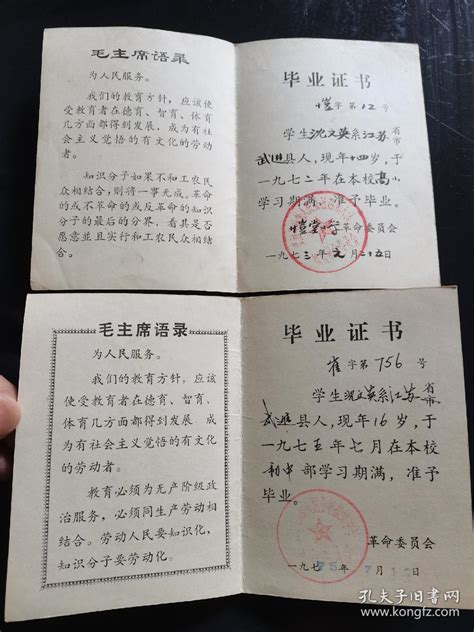 毛主席语录
为人民服务。
我们的教育方针，应该使
受教育者在德育、智育、体育
几方面都得到发展，成为有社
会主义觉悟的有文化的劳动
者。
知识分子如果不和工农民
众相结合，则将一事无成。革命
的或不革命的或反革命的知识
分子的最后的分界，看其是否
愿意并且实行和工农民众相结
合。
毕业证书
字第12号
学生沈文英系江苏省市
武进县人，现年十四岁，于
一九七二年在本校高小
学习期满，准予毕业。
堂小学革命委员会
一九七三年元月二十五日
毛主席语录
为人民服务。
我们的教育方针，应该
使受教育者在德育、智育、
体育几方面都得到发展，成
为有社会主义觉悟的有文化
的劳动者。
教育必须为无产阶级政
治服务，必须同生产劳动相
结合。劳动人民要知识化，
知识分子要劳动化。
毕业证书
字第756号
学生沈文英系江苏省市
武进县人，现年16岁，于
一九七五年七月在本校
初中部学习期满，准予
毕业。
革命委员会
一九七75年7月1日
孔夫子旧书网
www.kongfz.com